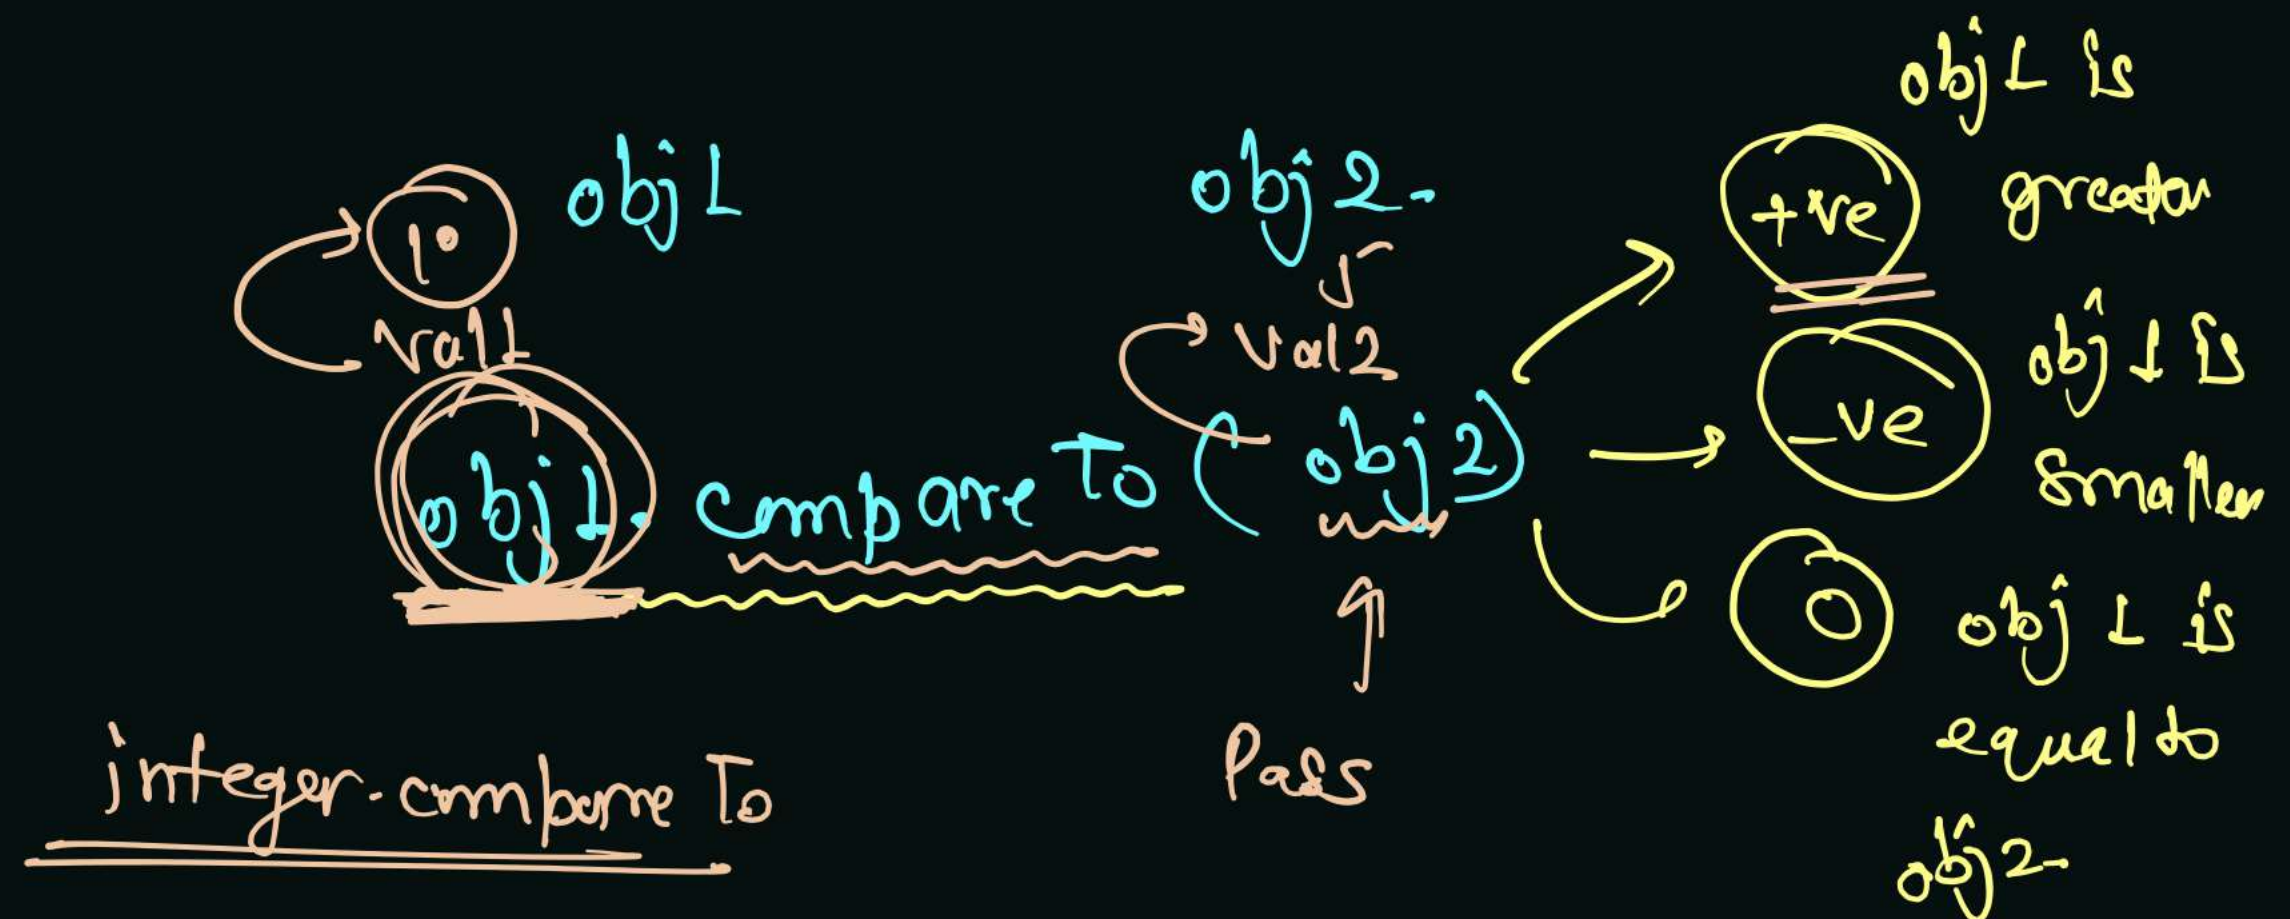 obj1
obj2
10
5
val1
val2
obj1. compareTo (obj2)
Pass
integer.compareTo
obj1 is
+ve
greater
obj1 is
-ve
smaller
0
obj1 is
equal to
obj2